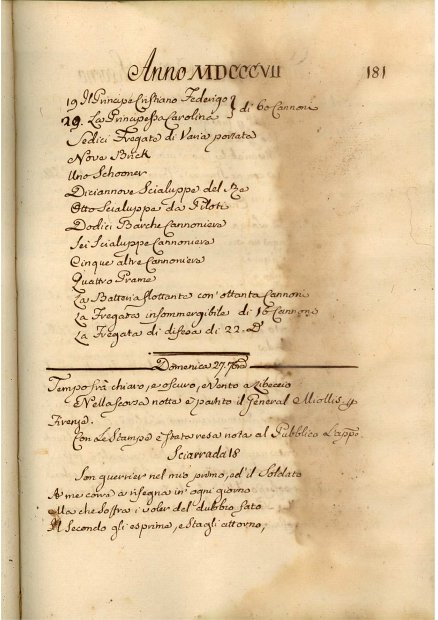 Anno MDCCCVII 181
19 Il Principe Cristiano Federigo } di 60 Cannoni
20. La Principessa Carolina
Sedici Fregate di Varia portata
Nove Brick
Uno Schooner
Diciannove Scialuppe del Re
Otto Scialuppe da Piloti
Dodici Barche Cannoniere
Sei Scialuppe Cannoniere
Cinque altre Cannoniere
Quattro Prame
La Batteria flottante con' ottanta Cannoni
La Fregata insommergibile di 16 Cannoni
La Fregata di difesa di 22. D.
Domenica 27. 7bre
Tempo frà chiaro, e oscuro, e Vento a Libeccio
Nella scorsa notte è partito il General Miollis p
Firenze.
Con Le Stampe è stata resa nota al Pubblico L'app.
Sciarrada 18
Son guerrier nel mio primo, ed il Soldato
A' me corre a risegna in' ogni giorno
Ma che soffra i voler del dubbio fato
Il Secondo gli esprime, e stagli attorno,